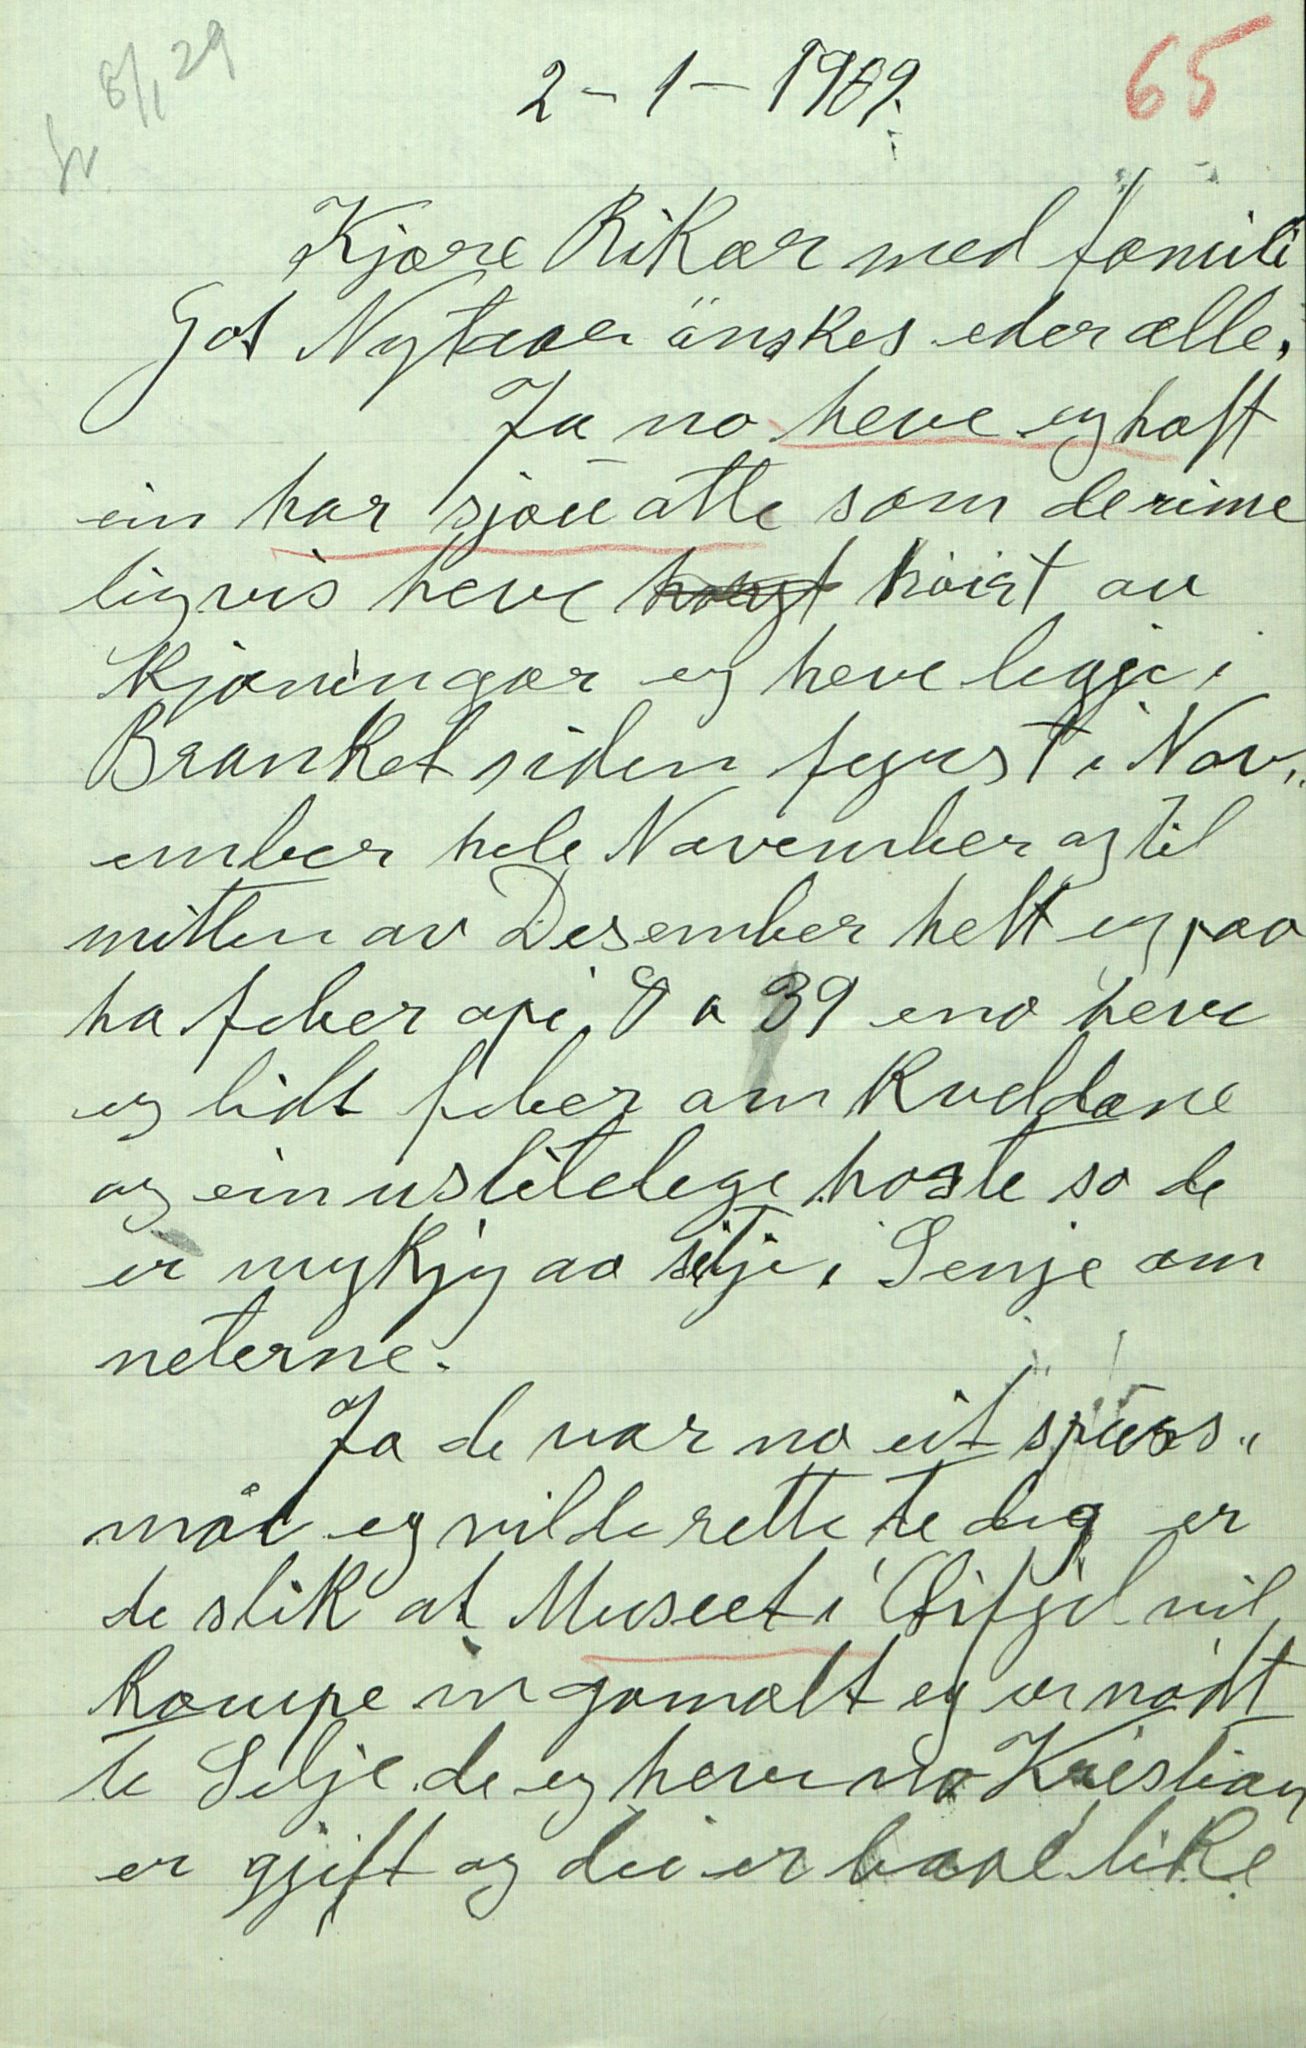 8/1 29
2 - 1 - 1909.
65
Kjære Rikar med famili
Got Nytaar änskes eder alle.
Ja no heve eg haft
ein har sjou atte som de rime
ligvis heve höirt au
Kjöningar eg heve legje i
Branket siden fyrst i Nov„
ember hele November og til
mitten av Desember helt eg paa
ha feber opi 8 a 39 eno heve
eg lidt feber om Kveldane
og ein uslitelege hoste so de
er mykjy ao sitje i Senje om
neterne.
Ja de var no eit spürs„
mål eg vilde rette te deg er
de slik at Museet i vil
Kaupe in gamalt eg er nödt
te Selje de eg heve no Kristian
er gjift og dei er baae like